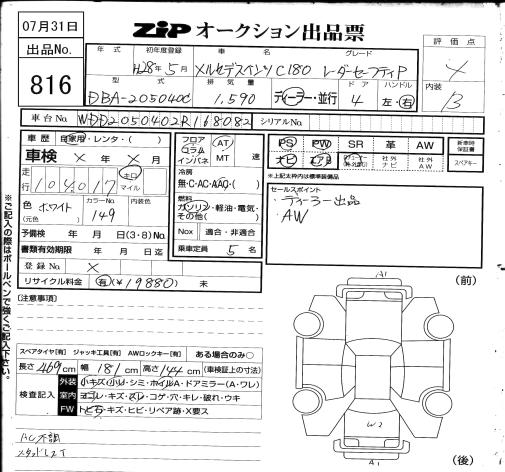 07月31日
出品No.
816
ZiP オークション出品票
年式 初年度登録 車名 グレード
H28年5月 メルセデスベンツ C180 レーダーセーフティP
型式 排気量 ドア ハンドル
DBA-205040C 1,590 ディーラー・並行 4 左・右
評価点
X
内装
B
車台No. WDD2050402R168082 シリアルNo.
車歴 自家用・レンタ・( )
車検 X 年 X 月
走行 104017 キロ マイル
色(元色) ホワイト カラーNo. 149 内装色
予備検 年 月 日(3・8)No.
書類有効期限 年 月 日
登録No. X
リサイクル料金 有(¥19880) 未
フロア コラム インパネ AT MT 速
冷房
無・C・AC・AAC・( )
燃料
ガソリン・軽油・電気・その他( )
Nox 適合・非適合
乗車定員 5 名
PS PW SR 革 AW
ナビ エアB 社外ナビ 社外AW
新車時保証書
スペアキー
※上記太枠内は標準装備品
セールスポイント
・ディーラー出品
・AW
[注意事項]
スペアタイヤ[有] ジャッキ工具[有] AWロックキー[有] ある場合のみ○
長さ 469cm 幅 181cm 高さ 144cm (車検証上の寸法)
検査記入
外装 小キズ・小U・シミ・ホイルA・ドアミラー(A・ワレ)
室内 ヨゴレ・キズ・スレ・コゲ・穴・キレ・破れ・ウキ
FW トビ石・キズ・ヒビ・リペア跡・X要ス
AC不調
スタッドレスT
A1
(前)
W2
A1
(後)
※ご記入の際はボールペンで強くご記入下さい。